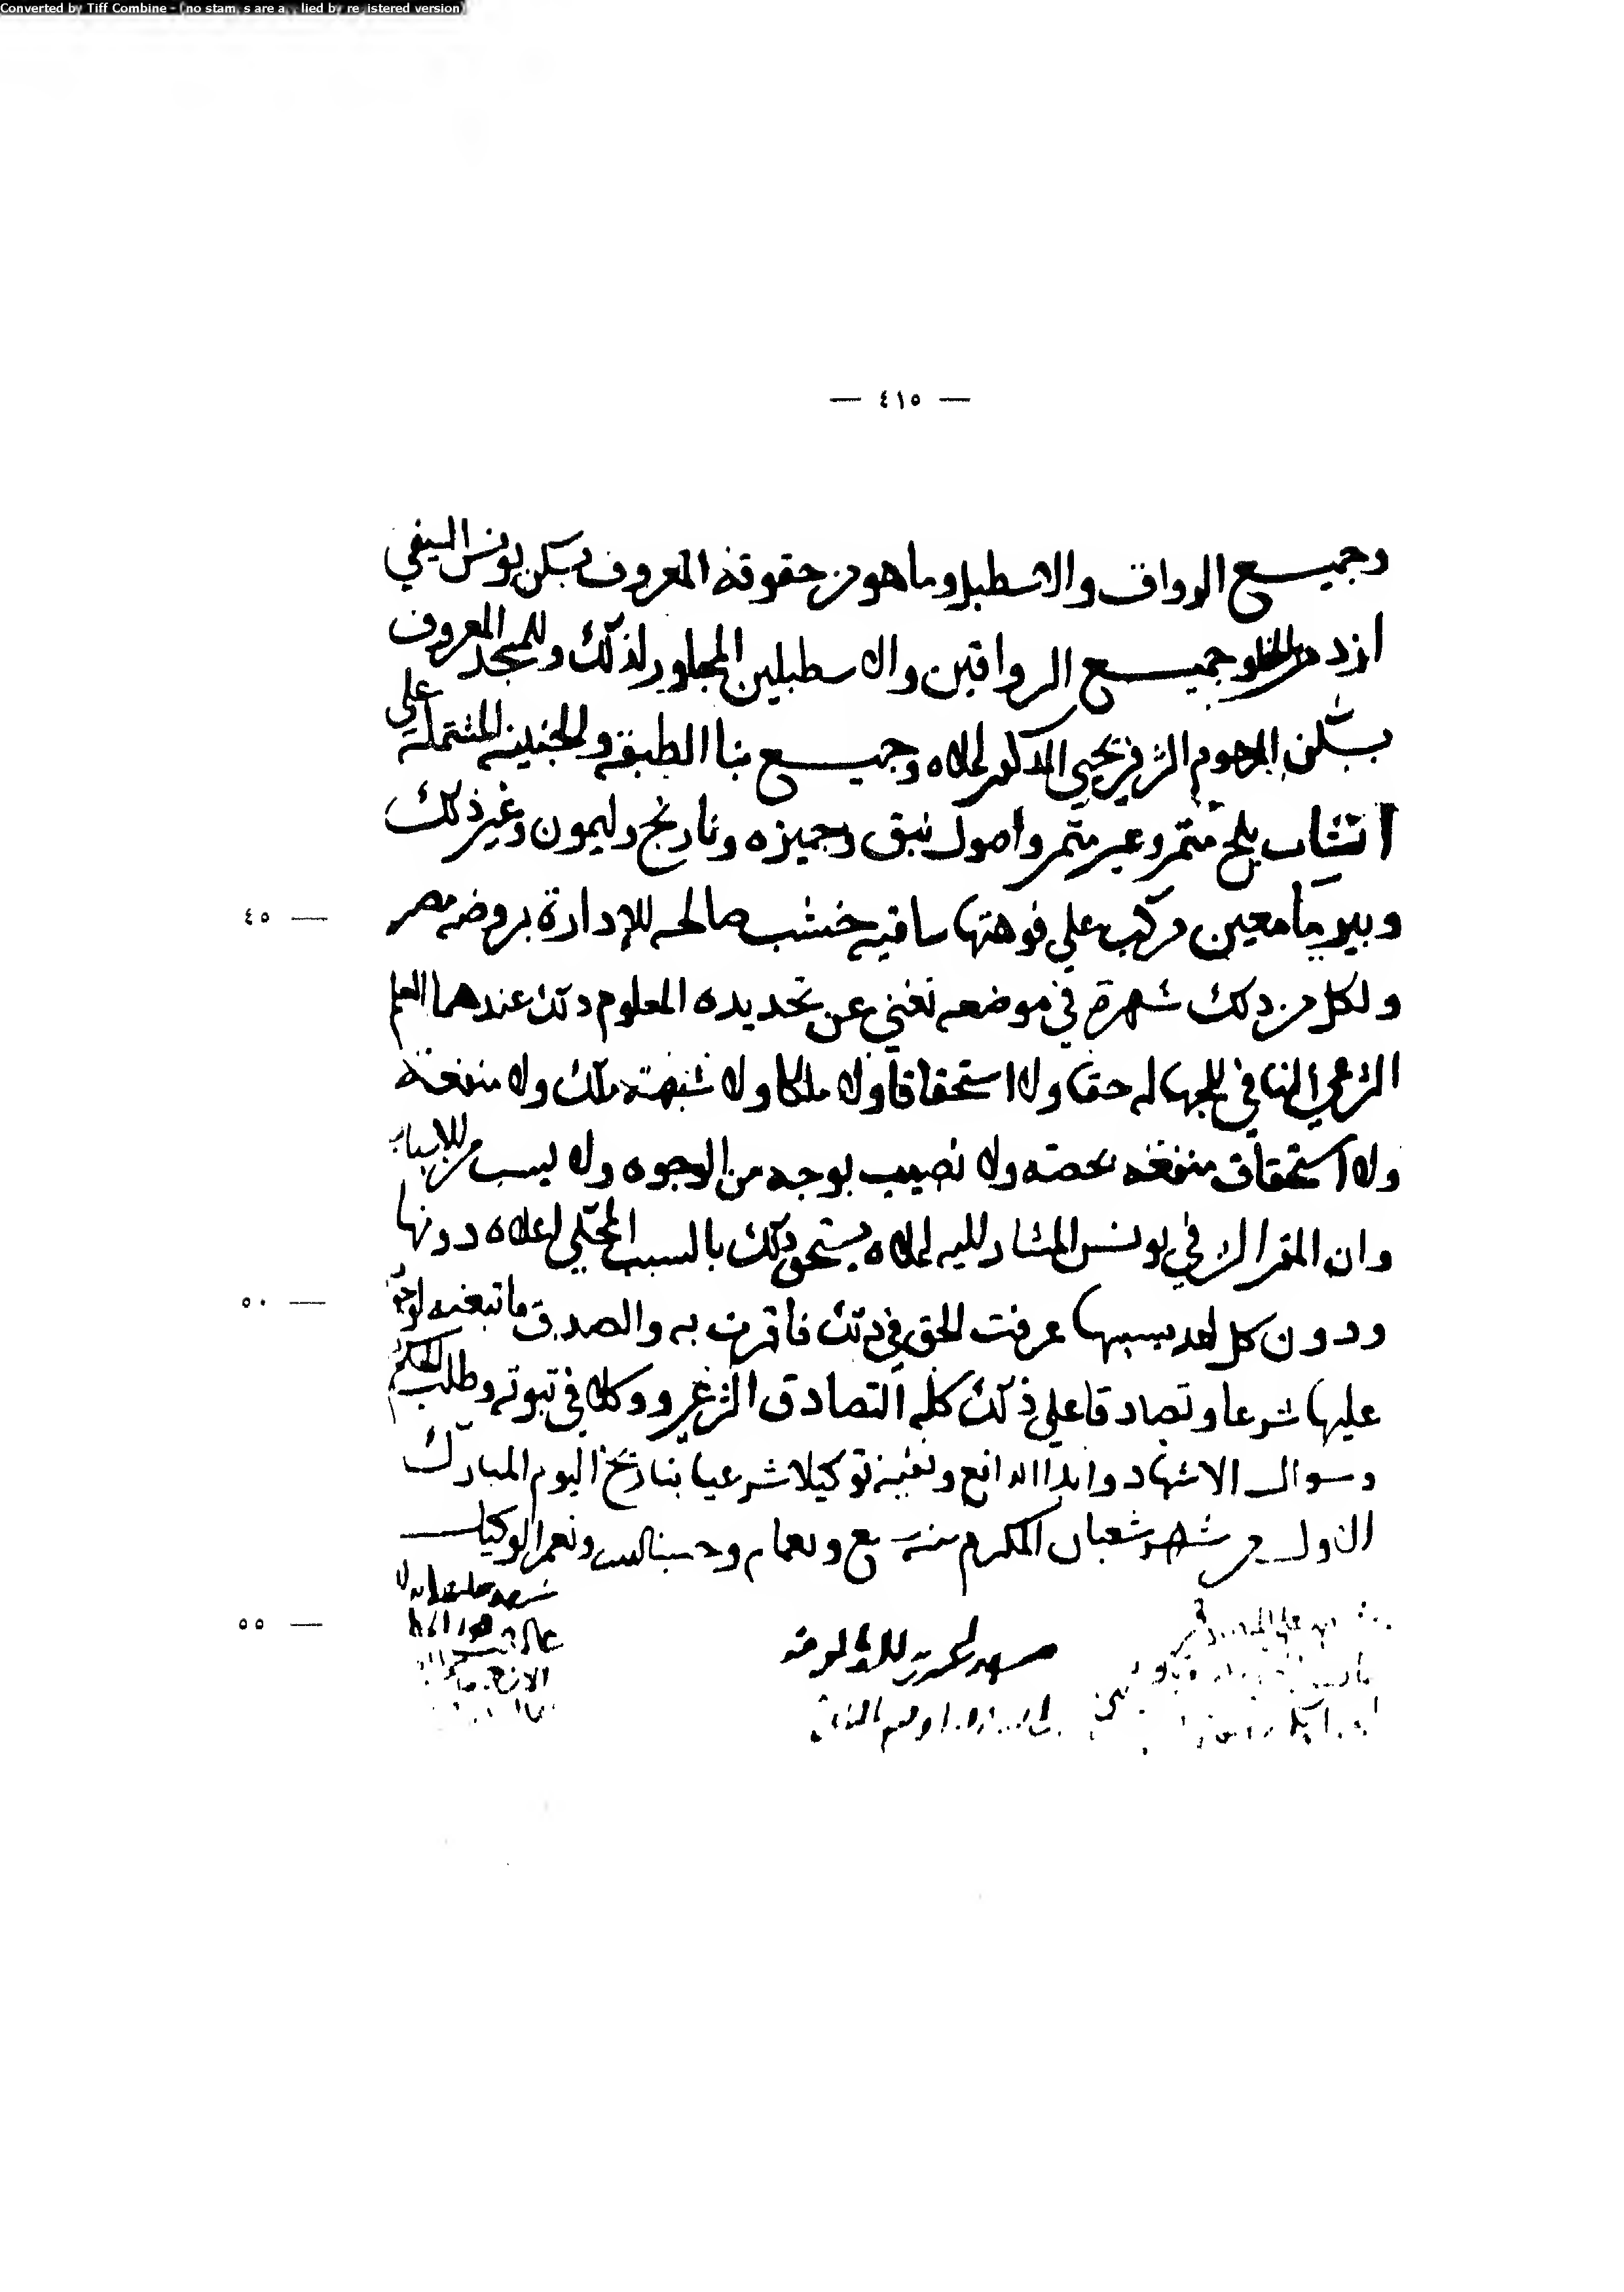 Converted by Tiff Combine - (no stamps are applied by registered version)
— ٤١٥ —
وجميع الرواق والاسطبل وما هو من حقوقه المعروف بسكن يونس السيفي
ازدمر وجميع الرواقين والاسطبلين المجاور لذلك وللمسجد المعروف
بسكن المرحوم الشرفي يحيى المذكور اعلاه وجميع بنا الطبقه والجنينه المشتملة على
انشاب بلح مثمر وغير مثمر واصول نبق وجميزه ونارنج وليمون وغير ذلك
٤٥ — وبير ما معين مركب علي فوهتها ساقيه خشب صالحه للإدارة بروضه مصر
ولكل من ذلك شهرة في موضعه تغني عن تحديده المعلوم ذلك عندهما العلم
الشرعي النافي للجهاله حقا ولا استحقاقا ولا ملكا ولا شبهة ملك ولا منفعة
ولا استحقاق منفعه بحصه ولا نصيب بوجه من الوجوه ولا بسبب من الاسباب
وان المقر الشرفي يونس المشار اليه اعلاه يستحق ذلك بالسبب المحكي اعلاه دونها
٥٠ — ودون كل احد بسببها عرفت الحق في ذلك فاقرت به والصدق فاتبعته لوجوبه
عليها شرعا وتصادقا على ذلك كله التصادق الشرعي ووكلا في ثبوته وطلب الحكم
وسوال الاشهاد وابدا الدافع ونفيه توكيلا شرعيا بتاريخ اليوم المبارك
الاول من شهر شعبان المكرم سنة وحسبنا الله ونعم الوكيل
٥٥ —